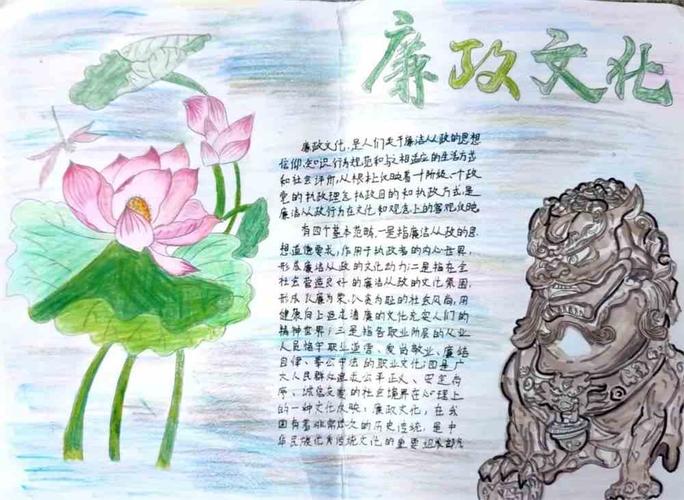 廉政文化
廉政文化,是人们关于廉洁从政的思想
信仰、知识、行为规范和与之相适应的生活方式
和社会评价,从根本上反映着一个阶级、一个政
党的执政理念、执政目的和执政方式,是
廉洁从政行为在文化和观念上的客观反映。
有四个基本范畴,一是指廉洁从政的思
想道德要求,作用于执政者的内心世界,
形成廉洁从政的文化动力;二是指在全
社会营造良好的廉洁从政的文化氛围,
形成以廉为荣、以贪为耻的社会风尚,用
健康向上追走清廉的文化充实人们的
精神世界;三是指各职业阶层的从业
人员恪守职业道德、爱岗敬业、廉洁
自律、奉公守法的职业文化;四是广
大人民群众追求公平正义、安定有
序、诚信友善的社会境界在心理上
的一种文化反映。廉政文化,在我
国有着非常悠久的历史传统,是中
华民族优秀传统文化的重要组成部分